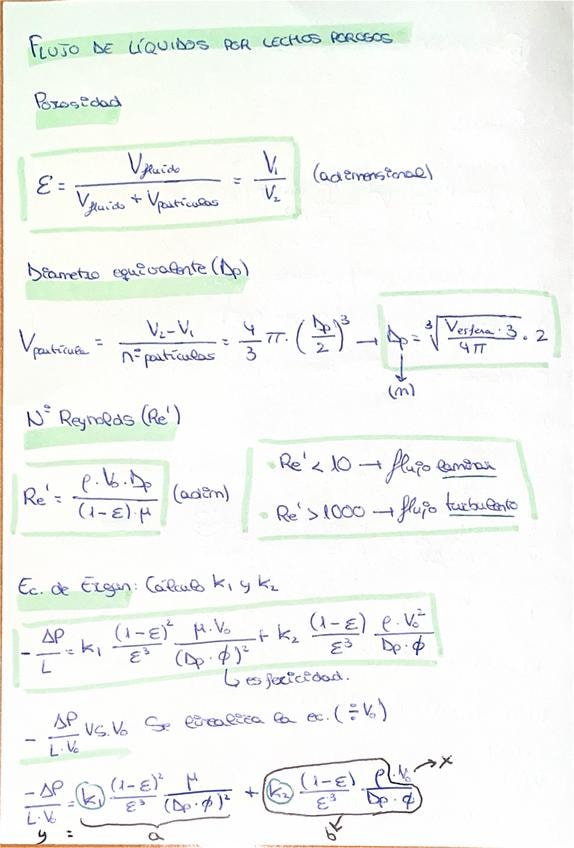 FLUJO DE LÍQUIDOS POR LECHOS POROSOS
Porosidad
ε = V_fluido / (V_fluido + V_partículas) = V₁ / V₂ (adimensional)
Diametro equivalente (Dp)
V_partícula = (V₂ - V₁) / nº partículas = 4/3 π · (Dp/2)³ → Dp = ³√(V_esfera · 3 / 4π) · 2
(m)
Nº Reynolds (Re')
Re' = ρ · V₀ · Dp / ((1-ε) · μ) (adim)
· Re' < 10 → flujo laminar
· Re' > 1000 → flujo turbulento
Ec. de Ergun: Cálculo k₁ y k₂
- ΔP/L = k₁ (1-ε)²/ε³ μ·V₀/(Dp·φ)² + k₂ (1-ε)/ε³ ρ·V₀²/(Dp·φ)
↳ esfericidad.
- ΔP/(L·V₀) vs. V₀ Se linealiza la ec. (÷V₀)
-ΔP/(L·V₀) = k₁ (1-ε)²/ε³ μ/(Dp·φ)² + k₂ (1-ε)/ε³ ρ·V₀/(Dp·φ) → x
y = a b